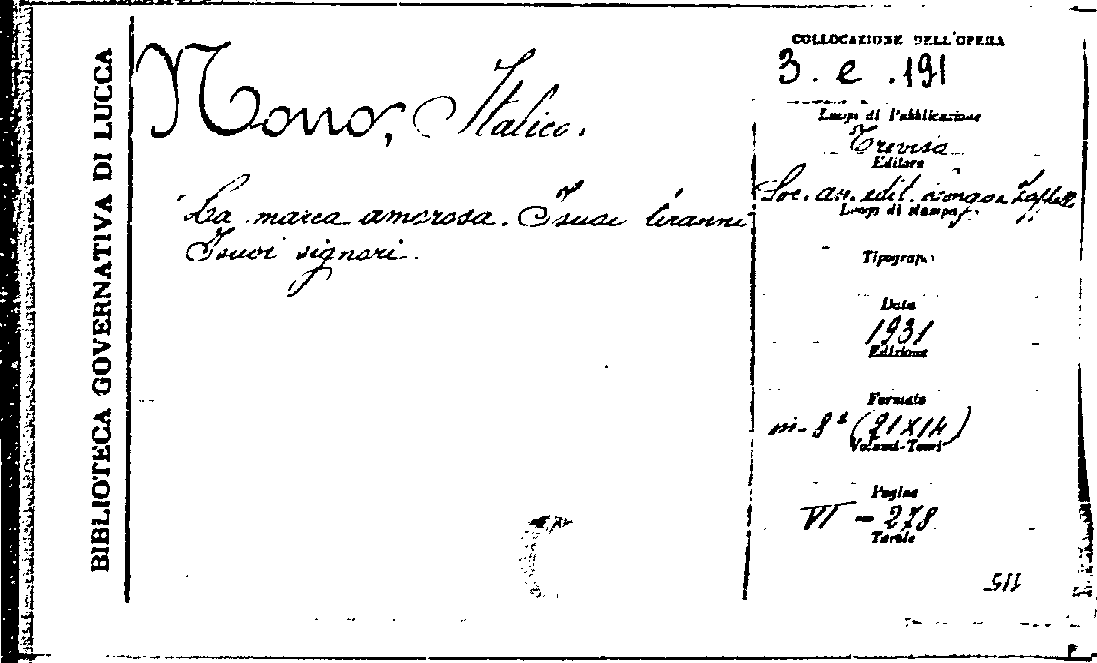 BIBLIOTECA GOVERNATIVA DI LUCCA
Nono, Italico.
La marca amorosa. I suoi tiranni
I suoi signori.
COLLOCAZIONE DELL'OPERA
3. e. 191
Luogo di Pubblicazione
Treviso
Editore
Soc. an. edit. Longo e Zoppelli
Luogo di stampa
Tipografo
Data
1931
Edizione
Formato
in-8° (21X14)
Volumi-Tomi
Pagine
VI - 278
Tavole